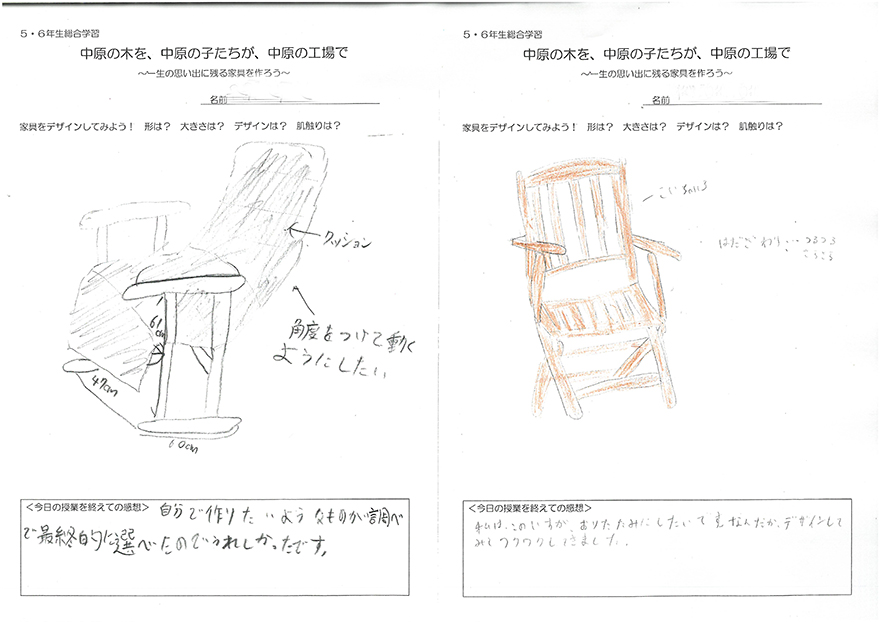 5・6年生総合学習
中原の木を、中原の子たちが、中原の工場で
～一生の思い出に残る家具を作ろう～
名前
家具をデザインしてみよう！ 形は？ 大きさは？ デザインは？ 肌触りは？
クッション
角度をつけて動く
ようにしたい
61cm
47cm
60cm
＜今日の授業を終えての感想＞ 自分で作りたいようなものが調べ
で最終的に選べたのでうれしかったです。
5・6年生総合学習
中原の木を、中原の子たちが、中原の工場で
～一生の思い出に残る家具を作ろう～
名前
家具をデザインしてみよう！ 形は？ 大きさは？ デザインは？ 肌触りは？
こいちゃいろ
はだざわり…つるつる
＜今日の授業を終えての感想＞
私は、このいすが、おりたたみにしたいです。なんだか、デザインして
みてワクワクしてきました。